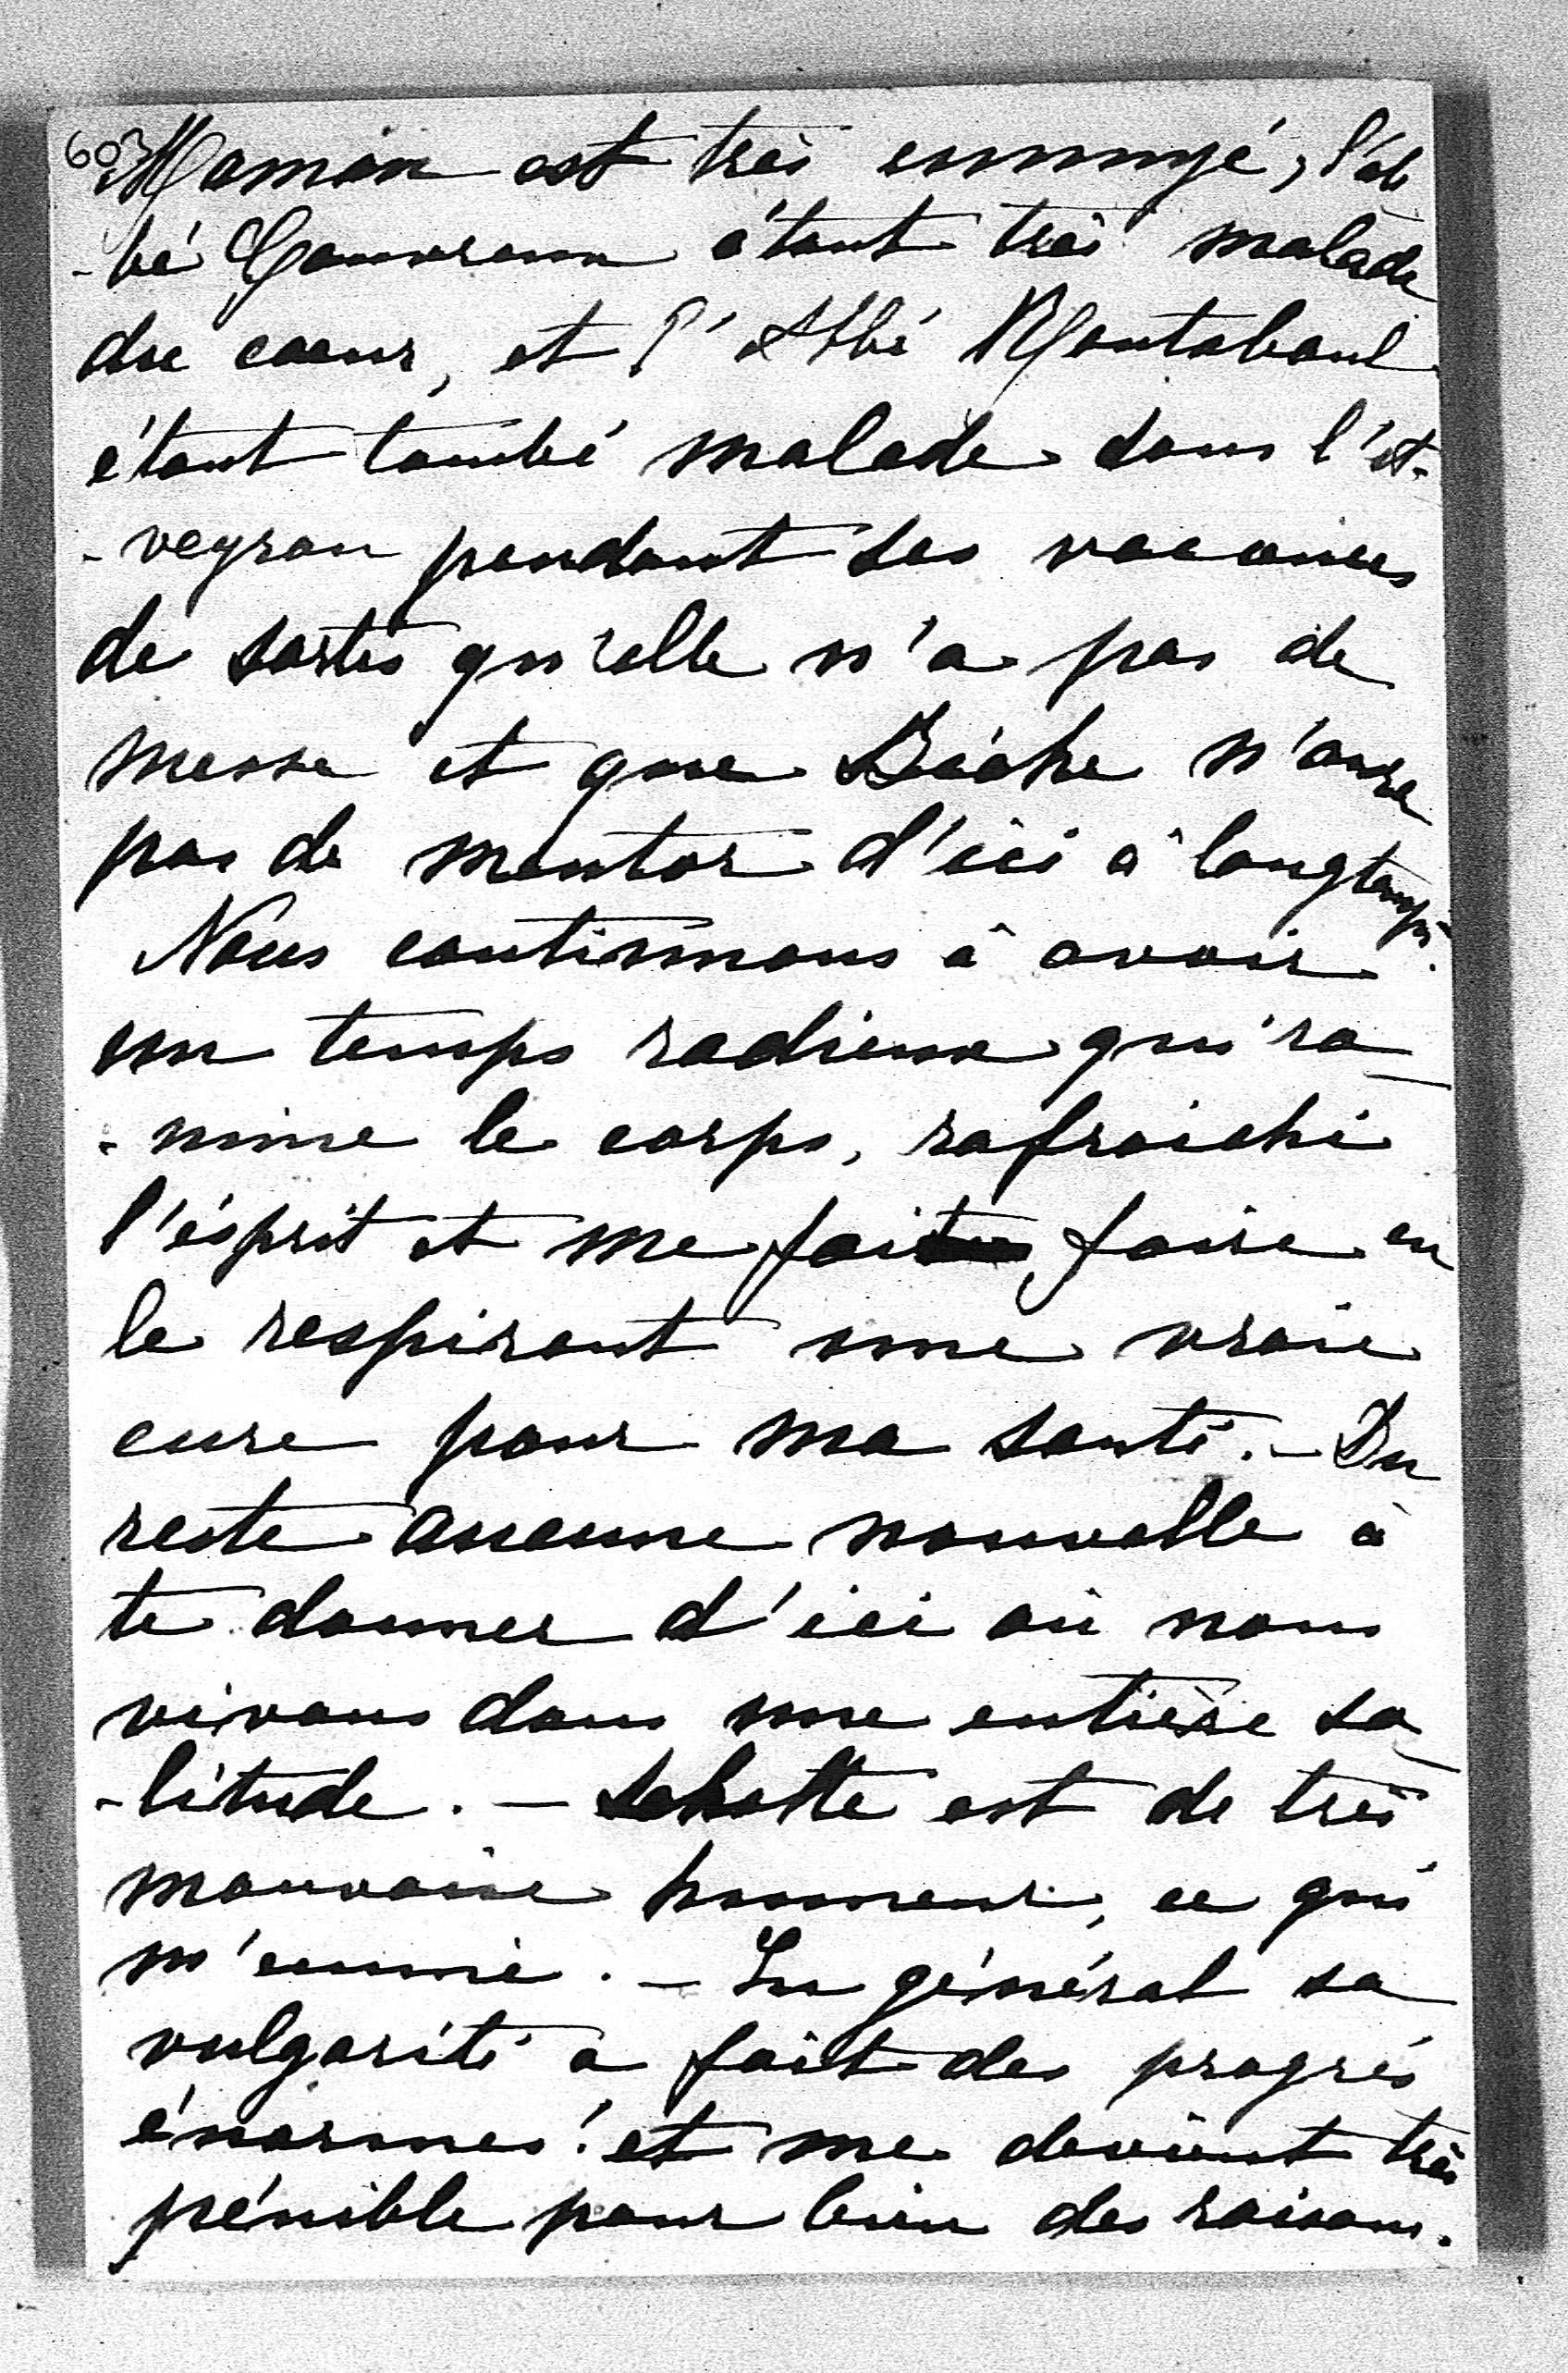 603
Maman est très ennuyé, l'ab
-bé Gauvreau étant très malade
du cœur, et l'Abbé Montabaul
étant tombé malade dans l'A-
-veyron pendant ses vacances
de sortes qu'elle n'a pas de
messe et que Biche n'aura
pas de mentor d'ici à longtemps.
Nous continuons à avoir
un temps radieux qui ra-
-nime le corps, rafraichi
l'ésprit et me fait faire en
le respirant une vraie
cure pour ma santé. - Du
reste aucune nouvelle à
te donner d'ici où nous
vivons dans une entière so-
-litude. - Schotte est de très
mauvaise humeur, ce qui
m'ennuie. - En général sa
vulgarité a fait des progrès
énormes! et me devient très
pénible pour bien des raisons.